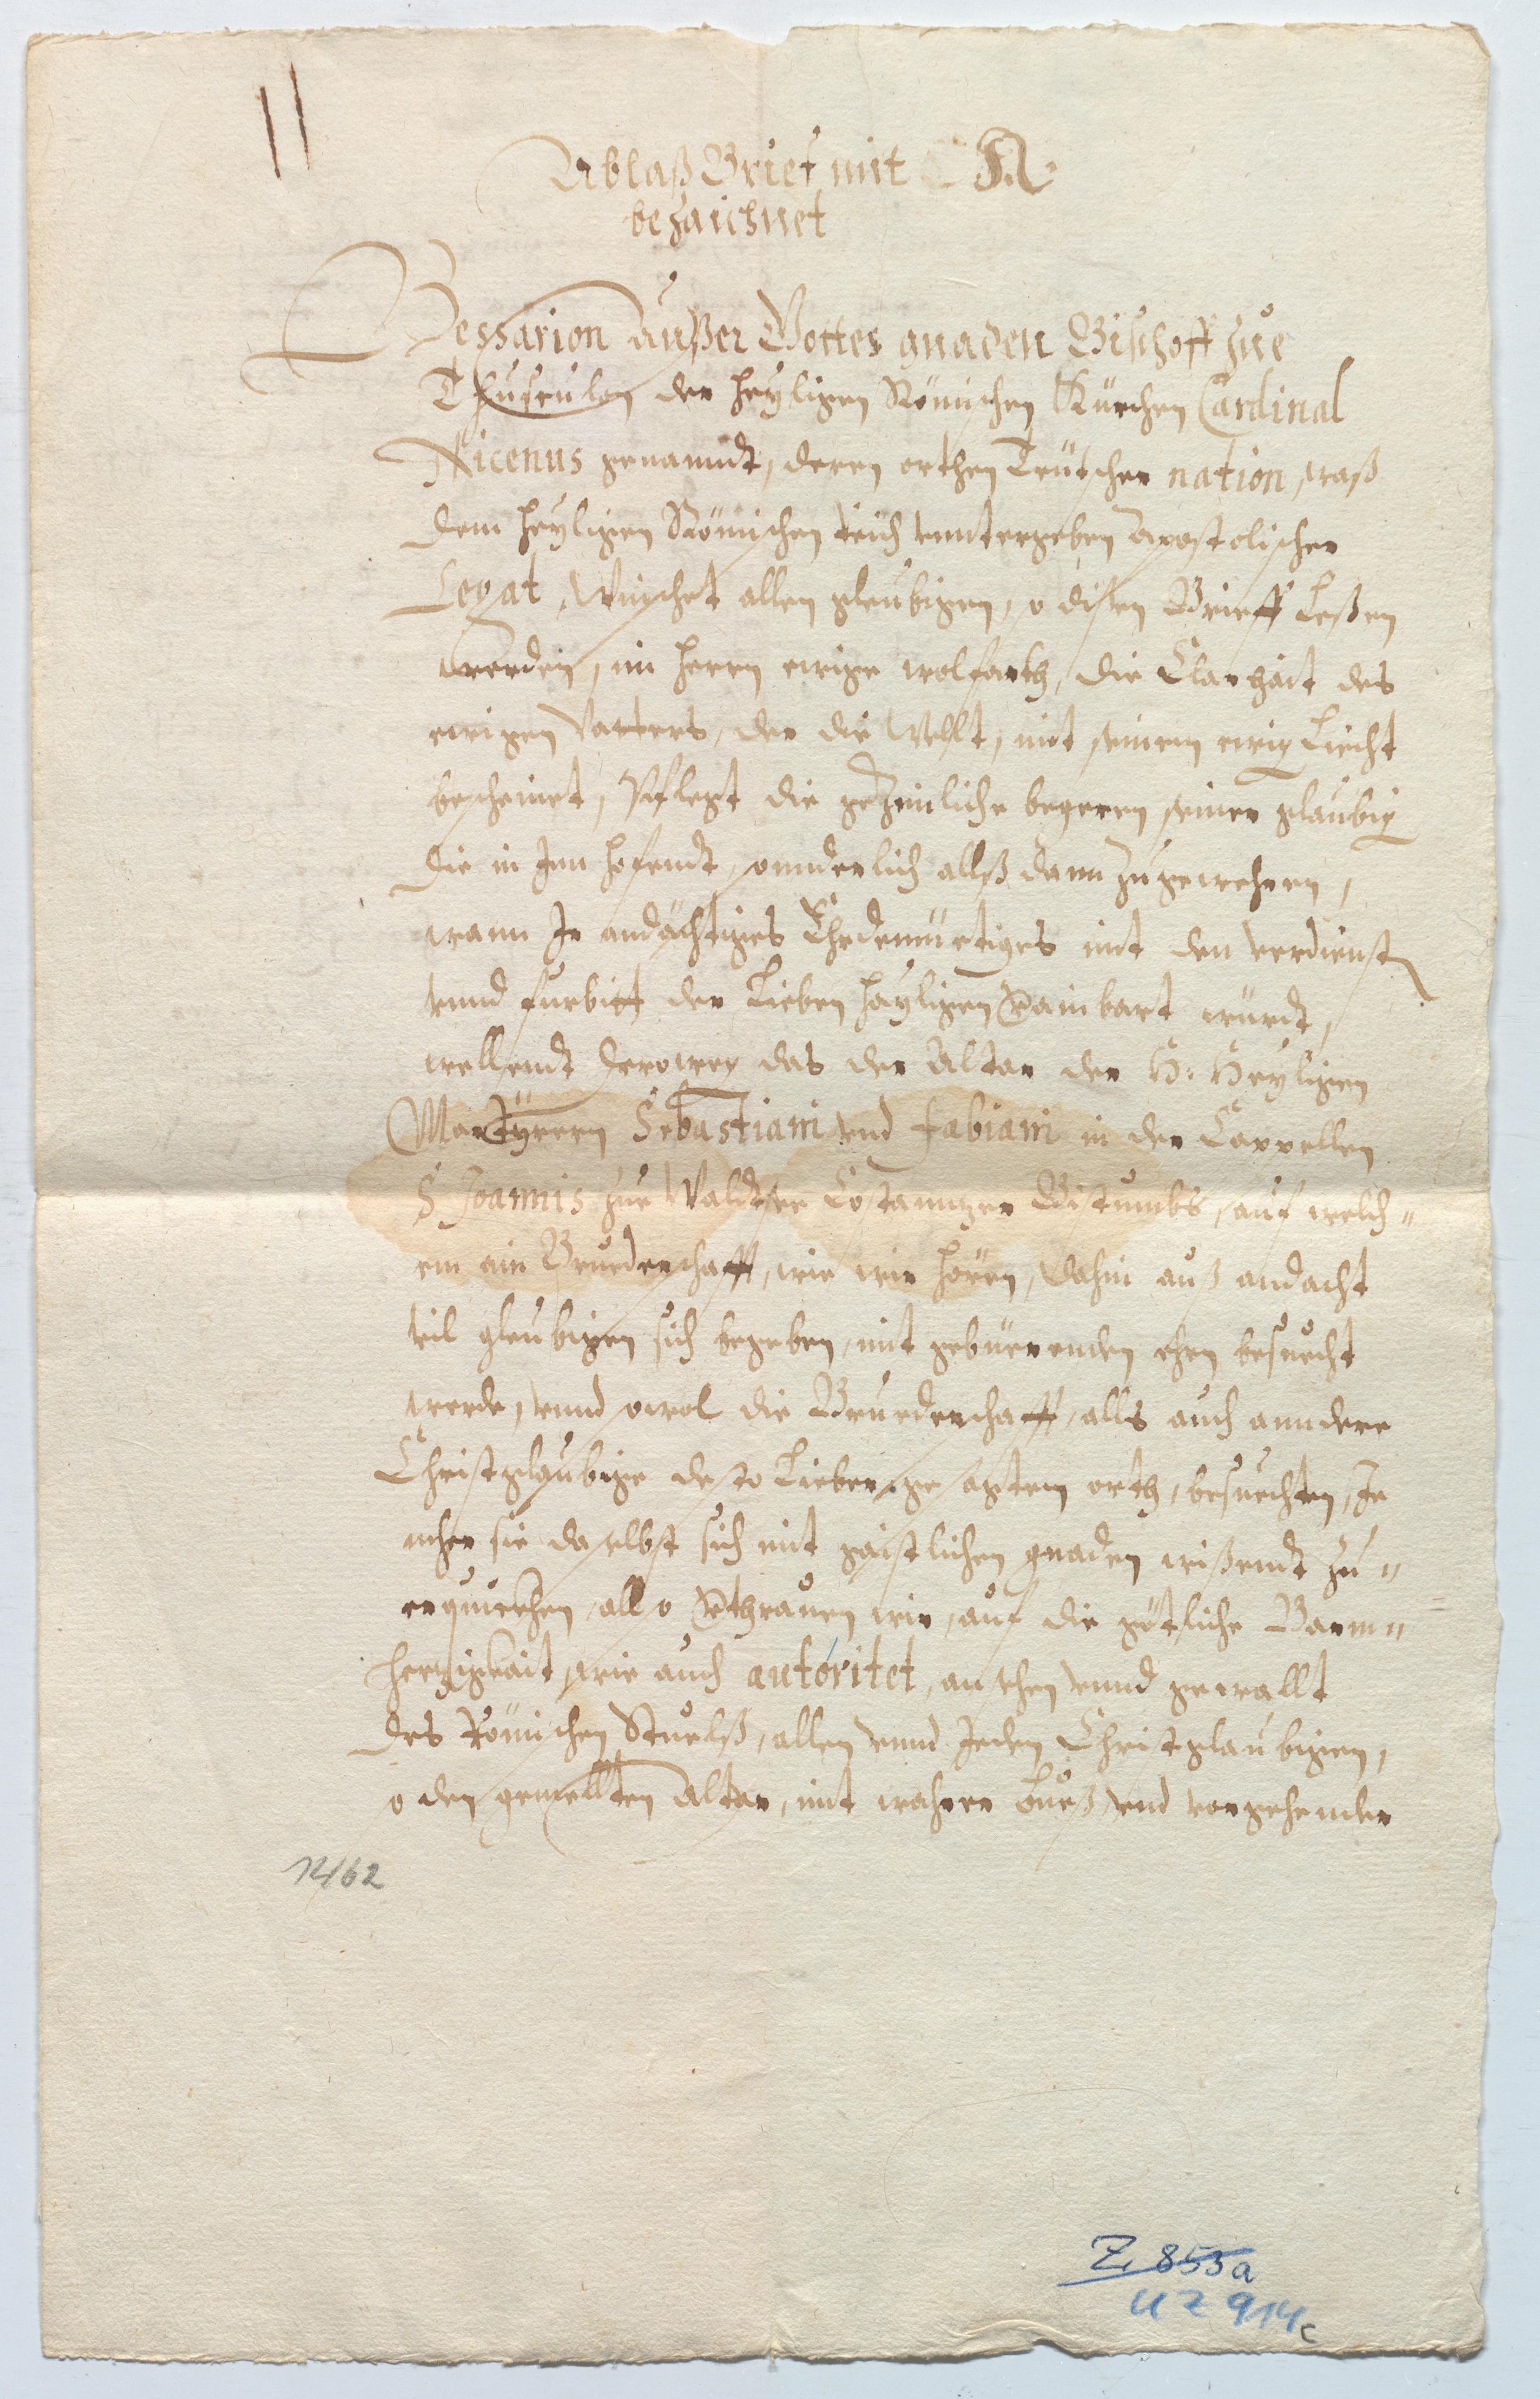 11
Ablaß Brief mit A
bezaichnet
Bessarion außer Gottes gnaden Bischoff zue
Thusculan der heyligen Römischen Kürchen Cardinal
Nicenus genanndt, deren orthen Teütscher nation, waß
dem heyligen Römischen reich unntergeben Apostolischer
Legat, Wünschet allen gleubigen, so disen Brieff Leßen
werden, im herrn ewige wolfarth, die Clarhait des
ewigen Vatters, der die Wellt, mit seinem ewig Liecht
bescheinet, Pflegt die gezimliche begeren seiner glaubig
die in Jnn hofendt, sonnderlich allß dann zugewehren,
wann Jr andächtiges mit den verdienst
vnnd furbitt der Lieben heyligen verainbart würdt,
wellendt deroweg das der Altar der H: Heyligen
Martÿrern Sebastiani vnd Fabiani in der Cappellen
S Joannis zue Waldtsee Costanntzer Bistumbs, auf welch„
em ain Bruederschafft, wie wir hören, dahin auß andacht
vil gleubigen sich begeben, mit gebürenden ehrn besuecht
werde, vnnd sowol die Bruederschafft, alls auch anndere
Christglaubige desto Lieber gesagtem orth, besuechten, Je
meher sie daselbst sich mit gaistlichen gnaden wißendt zu„
erquickhen, also verthrauen wir, auf die götliche Barm„
hertzigkait, wie auch autoritet, ansehen vnnd gewallt
des Römischen Stuelß, allen vnnd Jeden Christglaubigen,
so den gemellten Altar, mit wahrer bueß vnd vorgehender
1462
Z 853a
U Z 914c